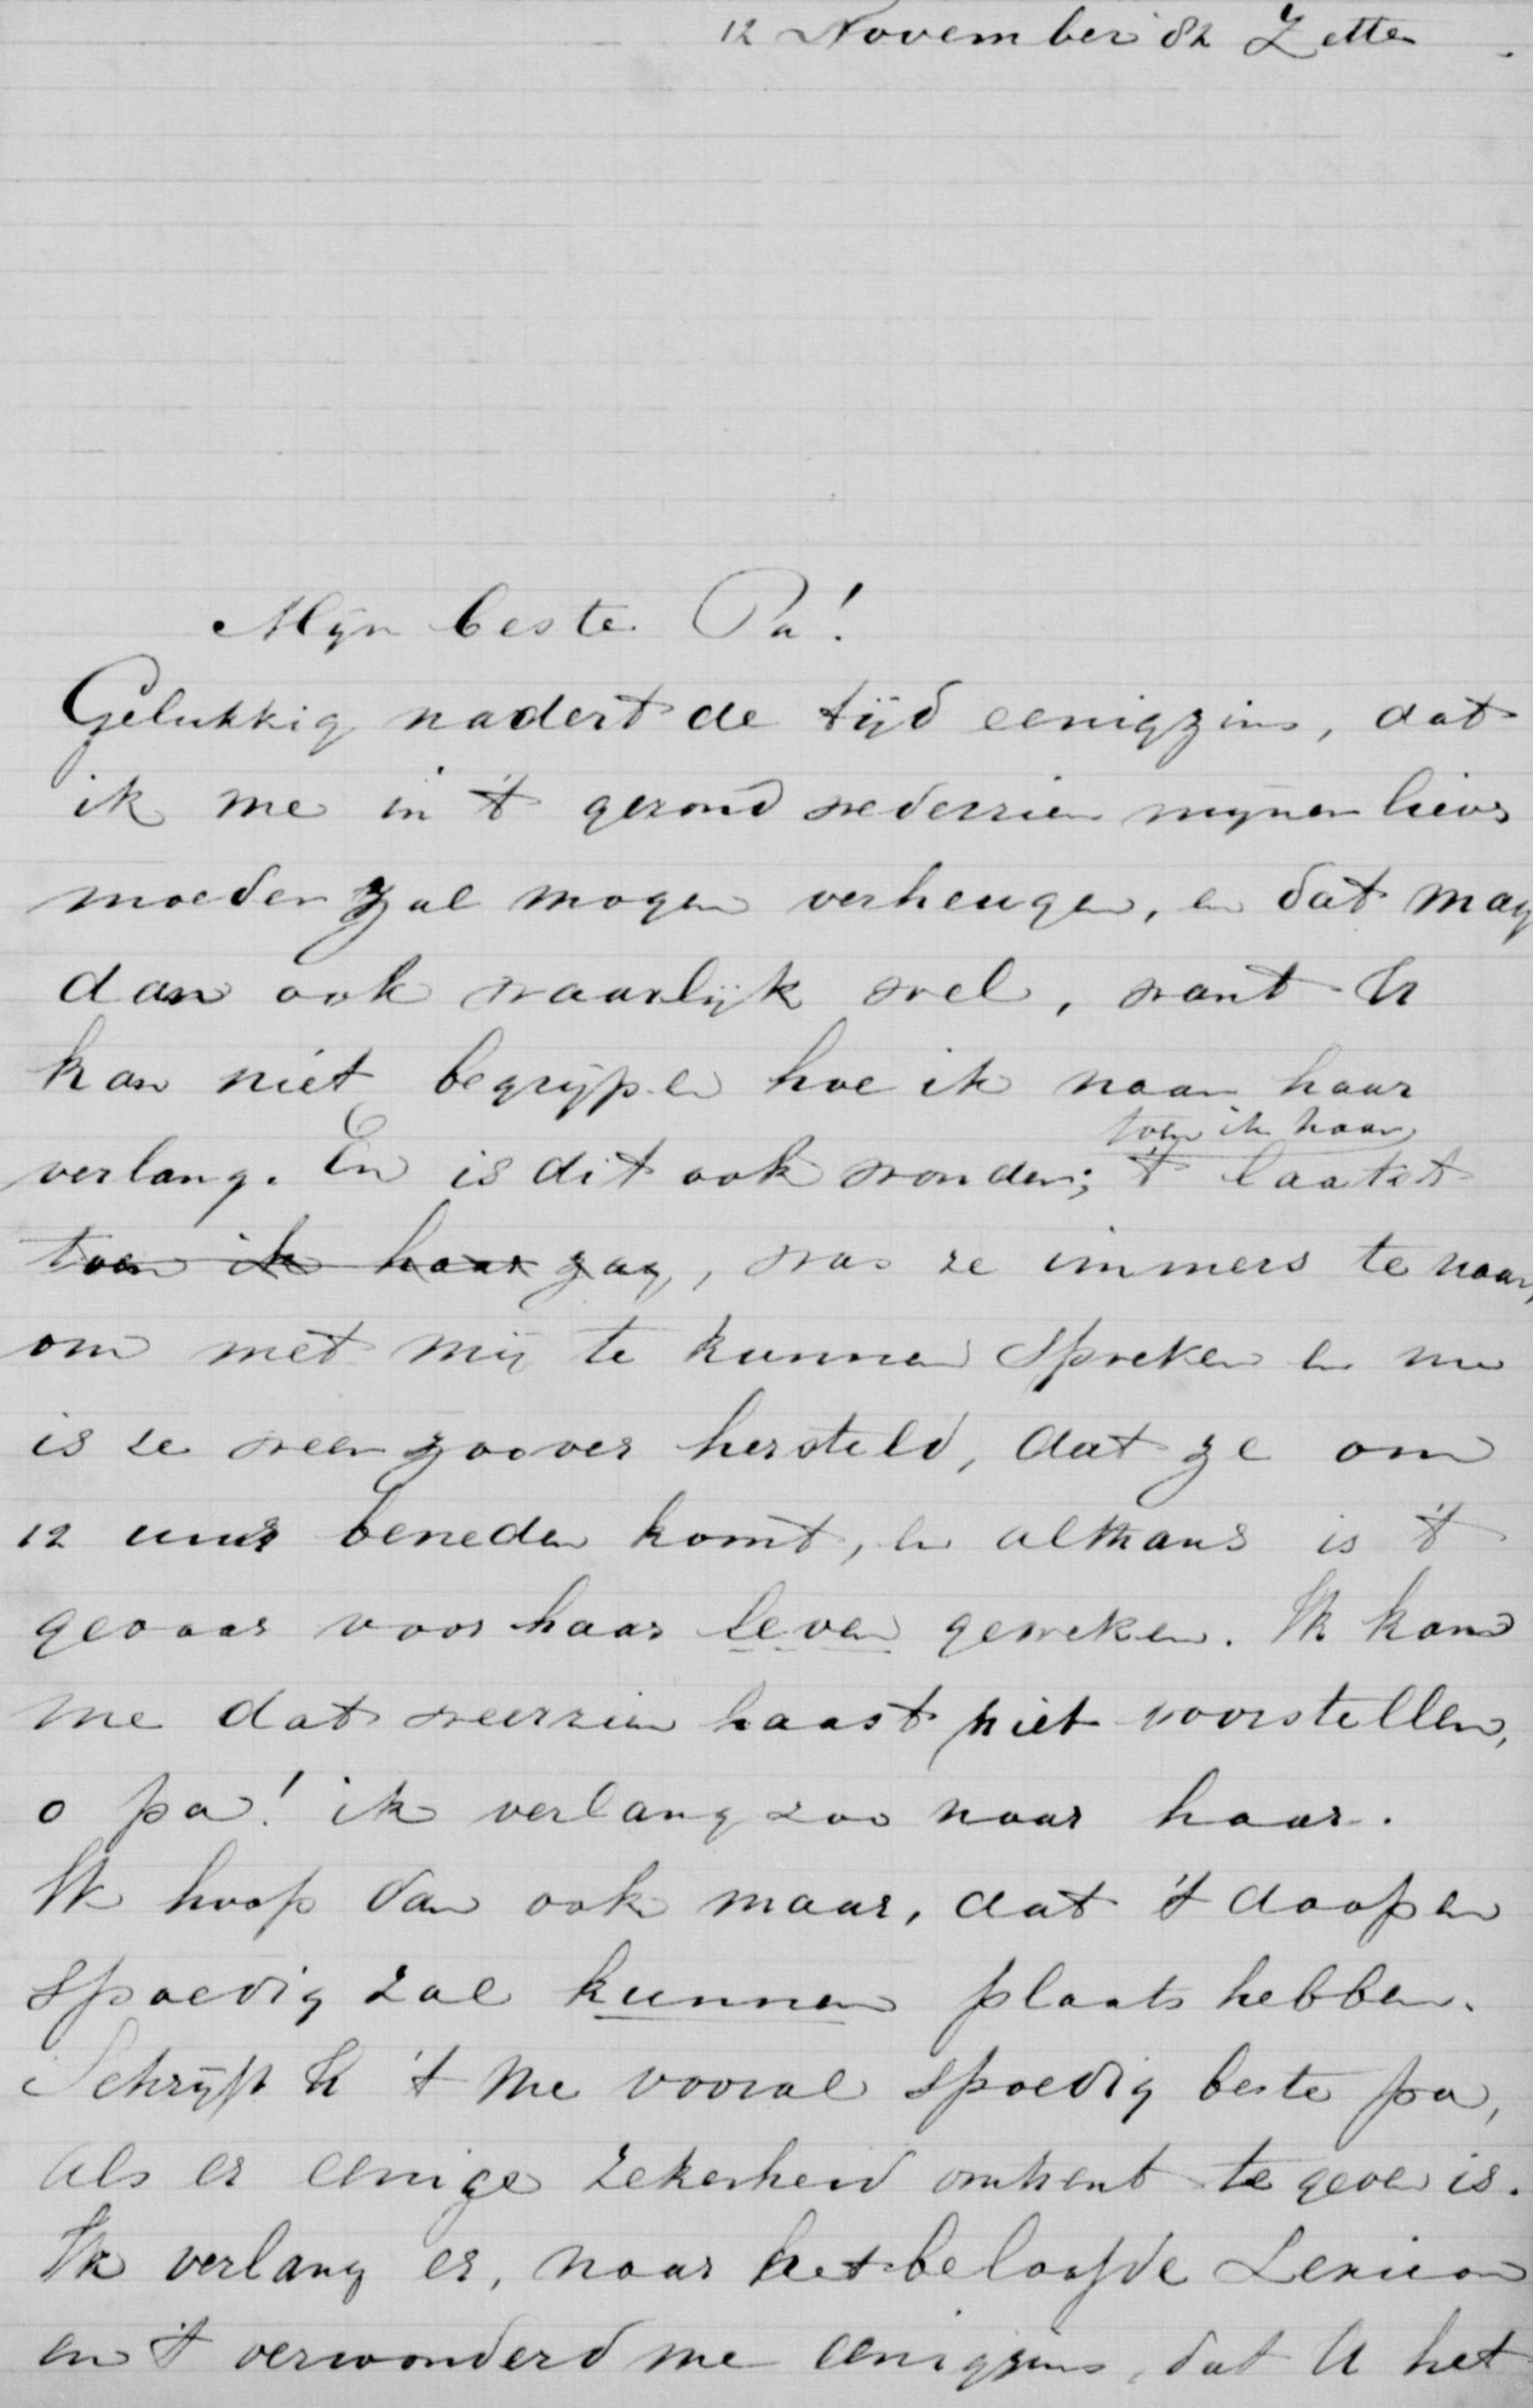 12 November 82 Zetten
Mijn beste Pa!
Gelukkig nadert de tijd eenigzins, dat
ik me in 't gezond wederzien mijner lieve
moeder zal mogen verheugen, en dat mag
dan ook waarlijk wel, want U
kan niet begrijpen hoe ik naar haar
verlang. En is dit ook wonder; 't laatst
toen ik haar
toen ik haar zag, was ze immers te naar,
om met mij te kunnen spreken en nu
is ze weer zoover hersteld, dat ze om
12 uur beneden komt, en althans is 't
gevaar voor haar leven geweken. Ik kan
me dat weerzien haast niet voorstellen,
o pa! ik verlang zoo naar haar.
Ik hoop dan ook maar, dat 't doopen
spoedig zal kunnen plaats hebben.
Schrijft U 't me vooral spoedig beste pa,
als er eenige zekerheid omtrent te geven is.
Ik verlang er, naar het beloofde Lexicon
en 't verwonderd me eenigzins, dat U het